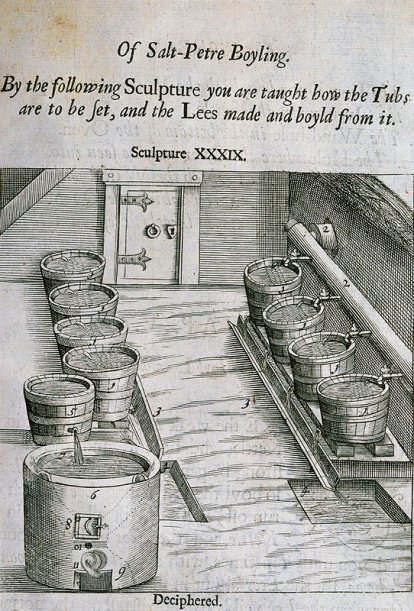 Of Salt-Petre Boyling.
By the following Sculpture you are taught how the Tubs
are to be ſet, and the Lees made and boyld from it.
Sculpture XXXIX.
2
2
3
3
5
6
8
10
11
9
Deciphered.